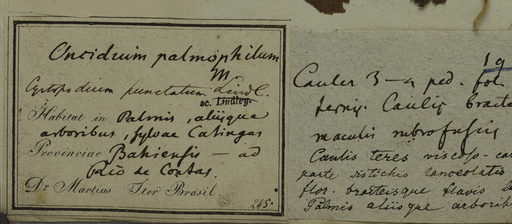 Oncidium palmophilum
M
Cyrtopodium punctatum Lindl.
sc. Lindley
Habitat in Palmis, aliisque
arboribus, sylvae Catingas
Provinciae Bahiensis — ad
Rio de Contas.
Dr Martius Iter Brasil.
245.
19
Caules 3-4 ped. fol.
Caulis bracte
maculis rubrofuscis
Caulis teres viscoso-
parte distichis lanceolatis
flor. bracteisque flavis
Palmis aliisque arborib